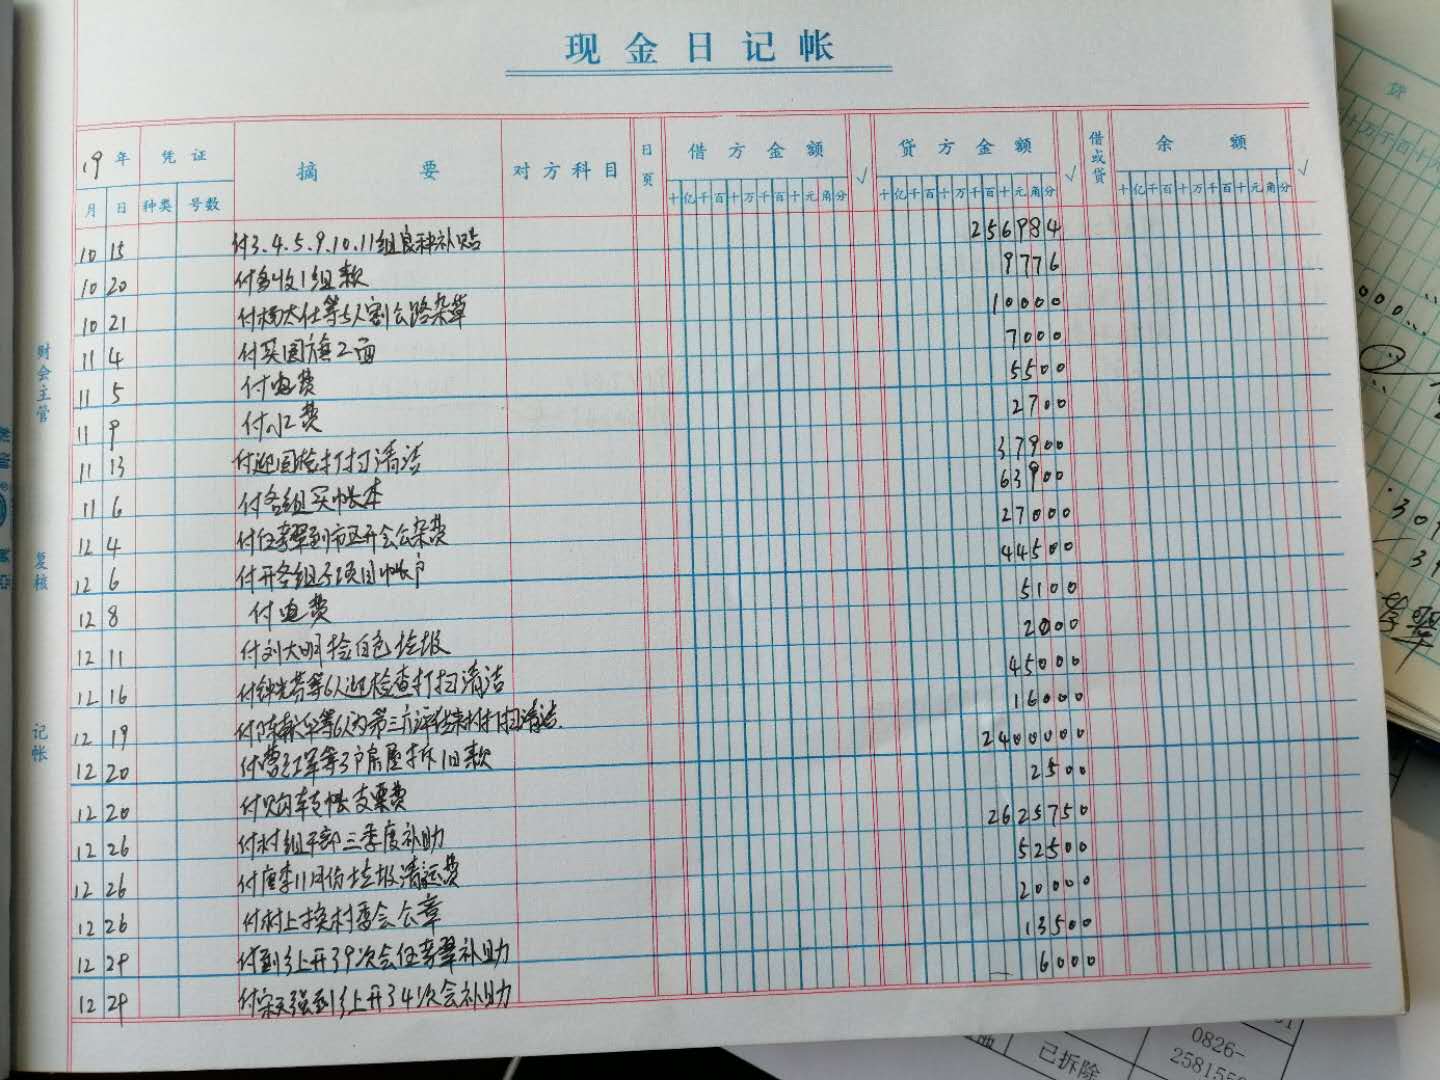 现金日记帐
19年 凭证 摘要 对方科目 日页 借方金额 √ 贷方金额 √ 借或贷 余额 √
月 日 种类 号数 十亿千百十万千百十元角分 十亿千百十万千百十元角分 十亿千百十万千百十元角分
10 15 付3.4.5.9.10.11组良种补贴 256984
10 20 付多收1组款 9776
10 21 付杨大仕等5人割公路杂草 10000
11 4 付买国旗2面 7000
11 5 付电费 5500
11 9 付水费 2700
11 13 付迎国检打扫清洁 37900
11 6 付各组买帐本 63900
12 4 付任孝翠到市区开会公杂费 27000
12 6 付开各组项目帐户 44500
12 8 付电费 5100
12 11 付刘大明捡白色垃圾 2000
12 16 付钟光芬等6人迎检查打扫清洁 45000
12 19 付陈等6人为第三方评估来村打扫清洁. 16000
12 20 付曹红军等3户房屋拆旧款 2400000
12 20 付购转帐支票费 2500
12 26 付村组干部三季度补助 2625750
12 26 付唐李11月份垃圾清运费 52500
12 26 付村上换村委会公章 20000
12 29 付到乡上开9次会任孝翠补助 13500
12 29 付宋天强到乡上开4次会补助 6000
财会主管
复核
记帐
已拆除
0826-